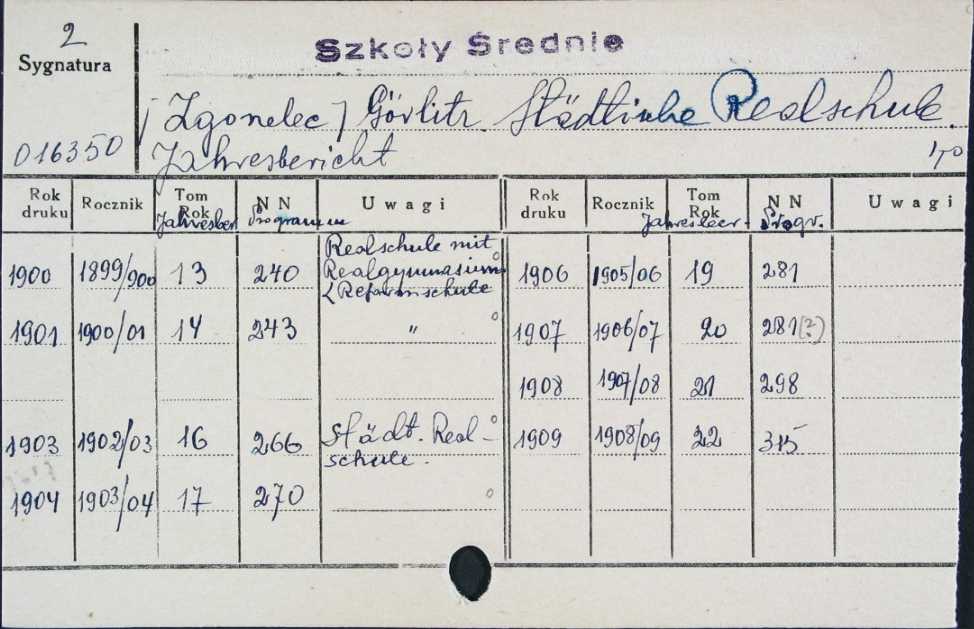 2
Sygnatura
Szkoły Średnie
[Zgorzelec] Görlitz Städtische Realschule.
016350 Jahresbericht 4o
Rok druku Rocznik Tom Rok N N Uwagi Rok druku Rocznik Tom Rok N N Uwagi
Jahresber Programm Jahresber. Progr.
1900 1899/900 13 240 Realschule mit Realgymnasium 1906 1905/06 19 281
& Reformschule
1901 1900/01 14 243 " 1907 1906/07 20 281(?)
1908 1907/08 21 298
1903 1902/03 16 266 Städt. Real-schule. 1909 1908/09 22 315
1904 1903/04 17 270